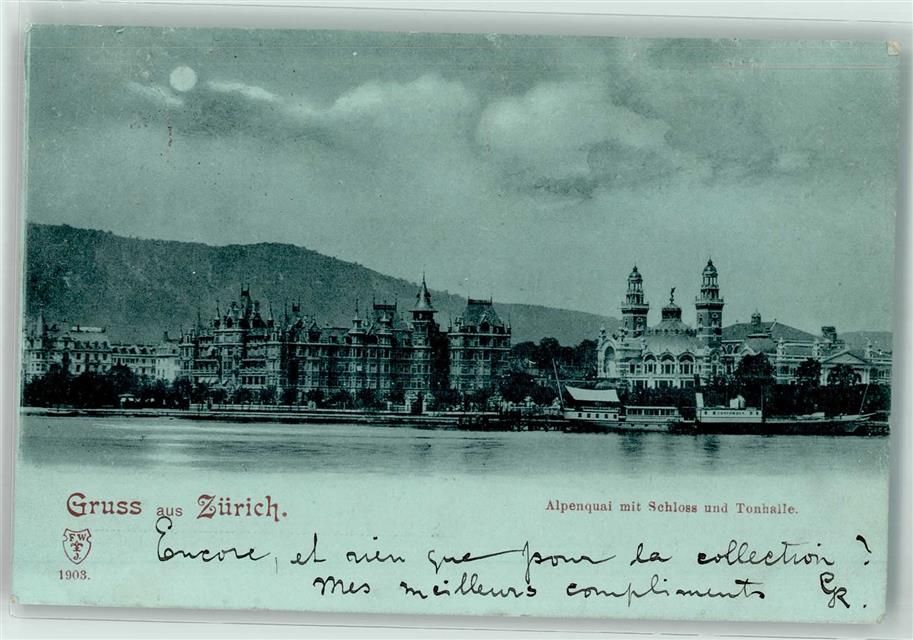 Gruss aus Zürich.
Alpenquai mit Schloss und Tonhalle.
F. W.
J.
1903.
Encore, et rien que pour la collection ?
Mes meilleurs compliments